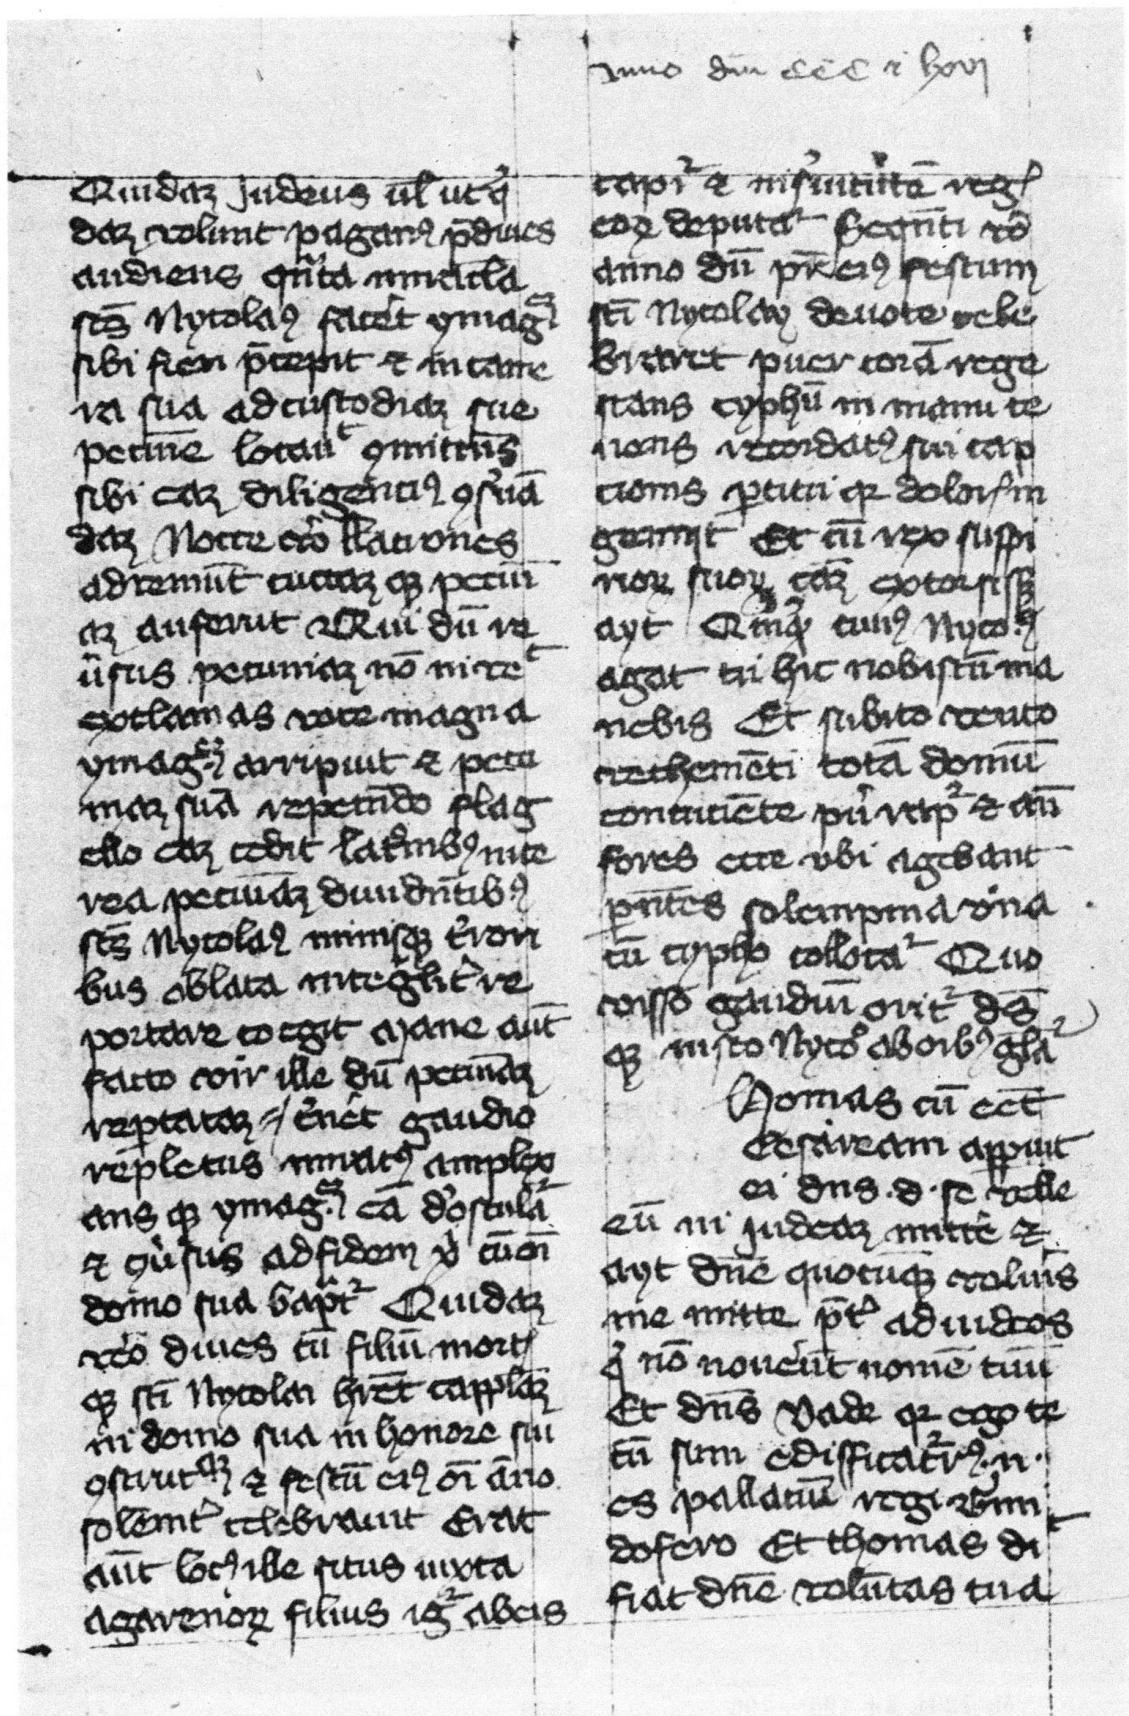 anno dm̄ ccc
Quidaꝫ Judeus ul̓ ut q̓
daꝫ volunt paganꝰ p̄diues
audiens qn̄ta miracl̓a
sc̄s Nycolaꝰ fac̓et ymagꝫ
sibi fieri p̄cepit ⁊ in came
ra sua ad custodiaꝫ sue
pecuīe locauᵗ ꝯmittēs
sibi eaꝫ diligenciꝰ ꝯs̓uā
daꝫ Nocte v̓o llatrones
adveniūt cuctaꝫ qꝫ pecuī
aꝫ auferut Qui dū re
u̓sus pecuniaꝫ nō inueᵗ
exclamās voce magna
ymagꝫ arripuit ⁊ pecu
niaꝫ suā repetēdo flag
ello eaꝫ cedit latīnibꝰ inte
rea pecuīaꝫ diuidn̄tibꝰ
sc̄s Nycolaꝰ minisqꝫ t̓rori
bus ablata integ̓lit̓ re
portare coegit Mane aūt
facto vir ille dū pecuīaꝫ
repꝑtataꝫ c̓n̓et gaudio
repletus miratꝰ amplex
ans qꝫ ymagꝫ eā d̓osculāᵗ
⁊ ꝯu̓sus ad fidem x̓ cū oī
domo sua bap̓tᵗ Quidaꝫ
v̓o diues cū filiū mortꝭ
qꝫ sc̄i Nycolai hēret cappl̓aꝫ
in domo sua in honore sui
ꝯstruitꝫ ⁊ festū eiꝰ oī āno
solēmt̓ celebrauit Erat
aūt locꝰ ille situs iuxta
agarenoꝝ filius igᵗ abeis
capiᵗ ⁊ in s̓uitutē regꝭ
eoꝝ deputaᵗ Seqn̄ti v̓o
anno dū pr̄ eiꝰ festum
sc̄i Nycolay deuote cele
braret puer corā rege
stans cyphū in manu te
nens recordatꝰ sui cap
cionis ꝑcutiqꝫ dolorꝭ in
gemit Et cū rex suspi
rioꝝ suoꝝ cāꝫ extorsisꝫ
ayt Qⁱnqꝫ tuuꝰ Nyco.ꝰ
agat tu hic nobiscū ma
nebis Et subito vento
vethemēti totā domū
concuciēte pu̓ rapᵗ ⁊ an̄
fores ecce vbi agebant
ꝑntes solempnia v̓na
cū cypho collocaᵗ Quo
visso gaudiū oritᵗ ds̄
qꝫ in sc̄o Nycō ab oibꝰ gl̓aᵗ
Thomas cū eēt
Cesaream apꝑuit
ei dns .d. se velle
eū in Judeaꝫ mitte ⁊
ayt dn̄e quocūqꝫ volu̓is
me mitte p̄t̓ ad iudeos
q̓ nō nou̓ēnt nomē tuū
Et dn̄s Vade qꝛ ego te
cū sum edifficat̓rꝰ .n.
es pallaciū regi Gūn
dofero Et thomas diᵗ
fiat dn̄e volūtas tua